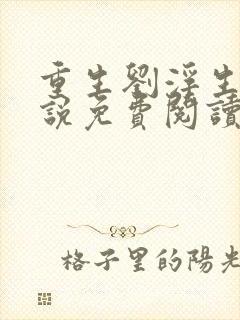 重生劉淫生
說免費閱讀
格子里的陽光